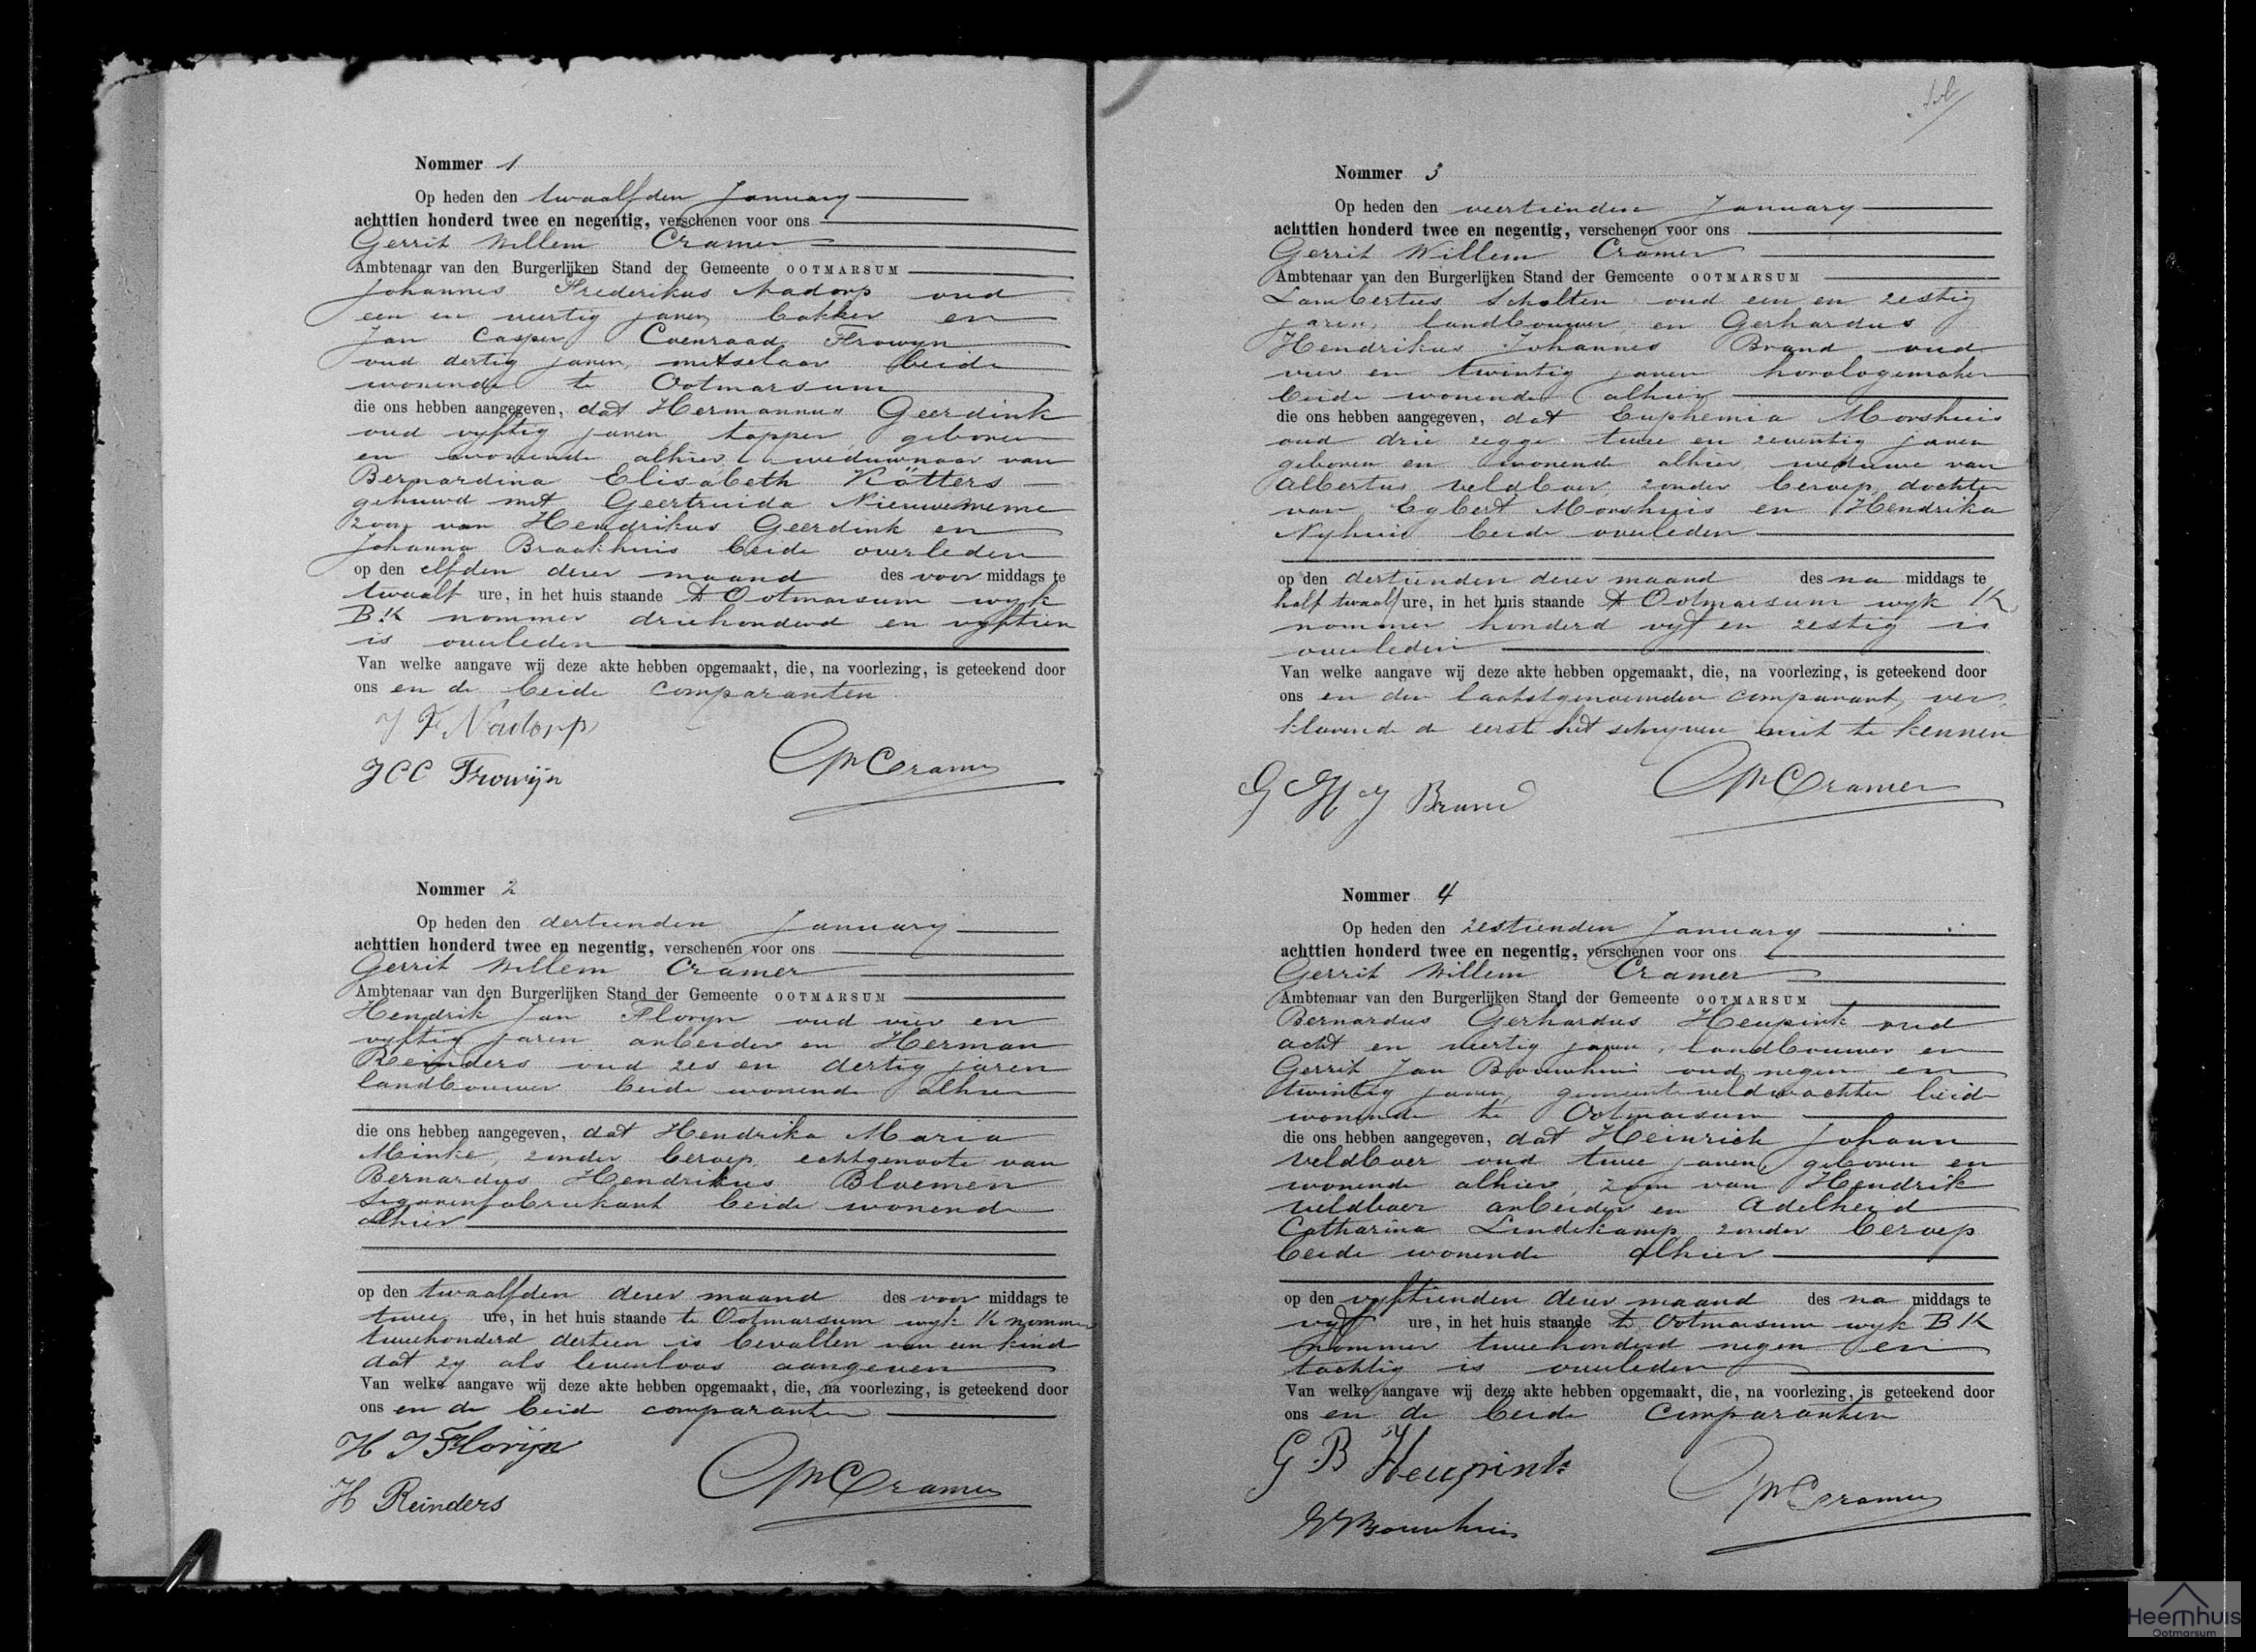 Nommer 1
Op heden den twaalfden January
achttien honderd twee en negentig, verschenen voor ons
Gerrit Willem Cramer
Ambtenaar van den Burgerlijken Stand der Gemeente OOTMARSUM
Johannes Frederikus Nadorp oud
een en veertig jaren, bakker en
Jan Casper Coenraad Frowyn
oud dertig jaren, metselaar beide
wonende te Ootmarsum
die ons hebben aangegeven, dat Hermannus Geerdink
oud vyftig jaren, tapper, geboren
en wonende alhier, weduwnaar van
Bernardina Elisabeth Kötters
gehuwd met Geertruida Nieuwe
zoon van Hendrikus Geerdink en
Johanna Braakhuis beide overleden
op den elfden dezer maand des voor middags te
twaalf ure, in het huis staande te Ootmarsum wyk
B.K nommer driehonderd en vyftien
is overleden
Van welke aangave wij deze akte hebben opgemaakt, die, na voorlezing, is geteekend door
ons en de beide comparanten
J F Nadorp
JCC Frowijn
GWCramer
Nommer 2
Op heden den dertienden January
achttien honderd twee en negentig, verschenen voor ons
Gerrit Willem Cramer
Ambtenaar van den Burgerlijken Stand der Gemeente OOTMARSUM
Hendrik Jan Floryn oud vier en
vyftig jaren arbeider en Herman
Reinders oud zes en dertig jaren
landbouwer beide wonende alhier
die ons hebben aangegeven, dat Hendrika Maria
Minke, zonder beroep, echtgenoote van
Bernardus Hendrikus Bloemen
Sigarenfabriekant beide wonende
alhier
op den twaalfden dezer maand des voor middags te
twee ure, in het huis staande te Ootmarsum wyk K nommer
tweehonderd dertien is bevallen van een kind
dat zy als levenloos aangeven
Van welke aangave wij deze akte hebben opgemaakt, die, na voorlezing, is geteekend door
ons en de beide comparanten
H J Florijn
H Reinders
GWCramer
Nommer 3
Op heden den veertienden January
achttien honderd twee en negentig, verschenen voor ons
Gerrit Willem Cramer
Ambtenaar van den Burgerlijken Stand der Gemeente OOTMARSUM
Lambertus Scholten oud een en zestig
jaren, landbouwer, en Gerhardus
Hendrikus Johannes Brand oud
vier en twintig jaren horologemaker
beide wonende alhier
die ons hebben aangegeven, dat Euphemia Morshuis
oud drie zegge twee en zeventig jaren
geboren en wonende alhier, weduwe van
Albertus Veldboer, zonder beroep, dochter
van Egbert Morshuis en Hendrika
Nyhuis beide overleden
op den dertienden dezer maand des na middags te
half twaalf ure, in het huis staande te Ootmarsum wyk K
nommer honderd vyf en zestig is
overleden
Van welke aangave wij deze akte hebben opgemaakt, die, na voorlezing, is geteekend door
ons en den laatstgenoemden comparant, ver,
klarende de eerst het schryven niet te kennen
G H J Brand
GWCramer
Nommer 4
Op heden den zestienden January
achttien honderd twee en negentig, verschenen voor ons
Gerrit Willem Cramer
Ambtenaar van den Burgerlijken Stand der Gemeente OOTMARSUM
Bernardus Gerhardus Heupink oud
acht en veertig jaren, landbouwer en
Gerrit Jan Bouwhuis oud negen en
twintig jaren, gemeenteveldwachter beide
wonende te Ootmarsum
die ons hebben aangegeven, dat Heinrich Johann
Veldboer oud twee jaren, geboren en
wonende alhier, zoon van Hendrik
Veldboer arbeider en Adelheid
Catharina Lindekamp zonder beroep
beide wonende alhier
op den vyftienden dezer maand des na middags te
vyf ure, in het huis staande te Ootmarsum wyk B K
nommer tweehonderd negen en
tachtig is overleden
Van welke aangave wij deze akte hebben opgemaakt, die, na voorlezing, is geteekend door
ons en de beide comparanten
G B Heupink
GJBouwhuis
GWCramer
Heemhuis
Ootmarsum